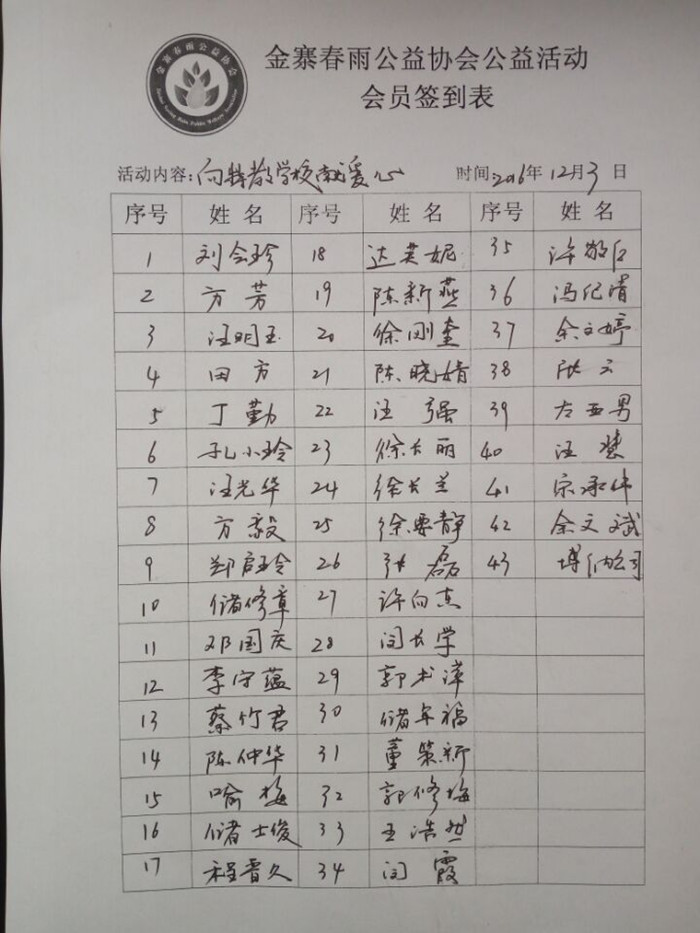 金寨春雨公益协会
金寨春雨公益协会公益活动
会员签到表
活动内容:向特教学校献爱心 时间:2016年12月3日
序号 姓名 序号 姓名 序号 姓名
1 刘会珍 18 达芙妮 35 许敬
2 方芳 19 陈新燕 36 冯纪清
3 汪明玉 20 徐刚奎 37 余文婷
4 田方 21 陈晓婧 38 张云
5 丁勤 22 汪强 39 左亚男
6 孔小玲 23 徐长丽 40 汪慧
7 汪光华 24 徐长兰 41 宗承伟
8 方毅 25 徐要静 42 余文斌
9 郑启玲 26 张磊 43 博纳公司
10 储修章 27 许向东
11 邓国庆 28 闵长学
12 李守蕴 29 郭术萍
13 蔡竹君 30 储年福
14 陈仲华 31 董策新
15 喻梅 32 郭修梅
16 储士俊 33 王浩然
17 程晋久 34 闵霞